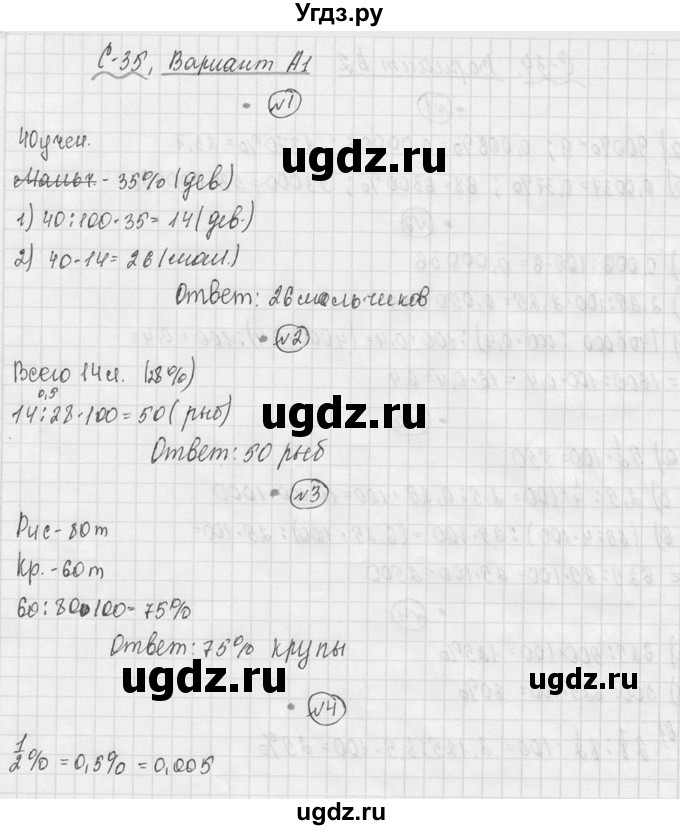 Угдз.ру
С-35, Вариант А1
№1
40 учен.
Мальч - 35% (дев)
1) 40:100·35= 14 (дев.)
2) 40-14= 26 (мал.)
Ответ: 26 мальчиков
№2
Всего 14 л. (28%)
0,5
14:28·100=50 (рыб)
Ответ: 50 рыб
№3
Рис-80т
Кр.-60т
60:80·100=75%
Ответ: 75% крупы
№4
1/2% = 0,5% = 0,005
ugdz.ru
ugdz.ru
ugdz.ru
ugdz.ru
ugdz.ru
ugdz.ru